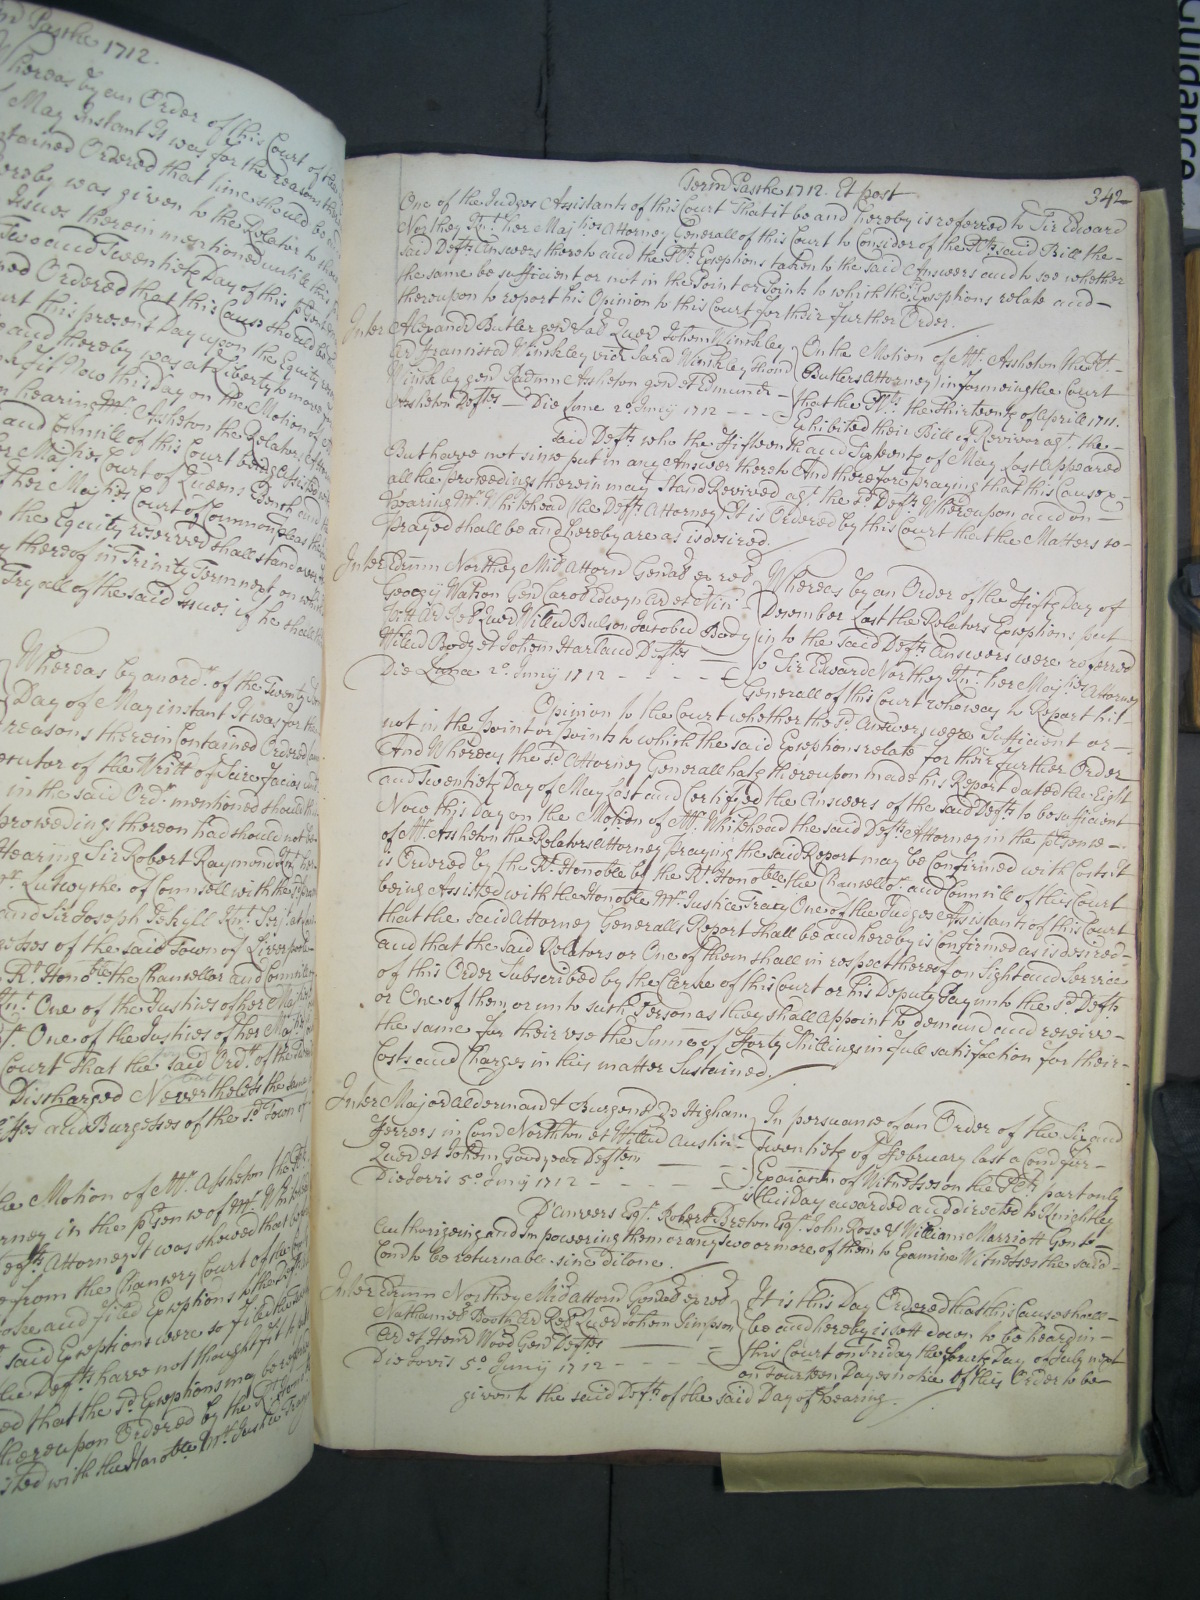 Term Paschæ 1712. Et post
342
One of the Judges Assistants of this Court That it be and hereby is referred to Sir Edward
Northey Knt. her Majties Attorney Generall of this Court to Consider of the Plts said Bill the
said Defts Answers thereto and the Plts Exceptions taken to the said Answers and to see whether
the same be sufficient or not in the Point or Points to which the Exceptions relate and
thereupon to report his Opinion to this Court for their further Order.
Inter Alexandr Butler gen Quer Johem Winckley
Ar Winckley Winckley Thom
Winckley gen Assheton gen et Edmund
Assheton Defts Die Lune 2o Junij 1712
On the Motion of Mr. Assheton the Plt.
Butlers Attorney informeing the Court
that the Plts. the Thirteenth of Aprill 1711.
Exhibited their Bill of Revivor agt. the
said Defts who the Fifteenth and Sixteenth of May last Appeared
But have not since put in any Answer thereto And therefore praying that this Cause &
all the proceedings therein may Stand Revived agt. the sd. Defts Whereupon and on
hearing Mr. Whitehead (the Defts. Attorney) It is Ordered by this Court that the Matters so
prayed shall be and hereby are as is desired.
Inter Edrum Northey Mil Attorn Genal ex rel
Georgij Watson Gen Ar et
Ar Quer Willum Bulson Jacobum Body
Willum Body et Johem Harland Defts
Die Lunæ 2o. Junij 1712
Whereas by an Order of the Fifth Day of
December Last the Relators Exceptions put
in to the said Defts Answers were referred
to Sir Edward Northey Knt. her Majties Attorney
Generall of this Court who was to Report his
Opinion to the Court whether the sd Answers were Sufficient or
not in the Point or Points to which the said Exceptions relate for their further Order
And Whereas the sd Attorney Generall hath thereupon made his Report dated the Eight
and Twentieth Day of May last and Certifyed the Answers of the said Defts to be sufficient
Now this Day on the Motion of Mr. Whitehead the said Defts Attorney in the psence
of Mr. Assheton the Relators Attorney praying the said Report may be Confirmed with Costs it
is Ordered by the Rt. Honoble by the Rt. Honoble the Chancellor and Councill of this Court
being Assisted with the Honoble Mr. Justice Tracy One of the Judges Assistants of this Court
that the said Attorney Generalls Report shall be and hereby is Confirmed as is desired
and that the said Relators or One of them shall in respect thereof on Sight and Service
of this Order Subscribed by the Clerke of this Court or his Deputy Pay unto the sd Defts
or One of them or unto such Person as they shall Appoint to demand and receive
the same for their use the Summe of Forty Shillings in full satisfaction for their
Costs and Charges in this matter Sustained.
Inter Major Alderman & Burgens de Higham
Ferrers in Com Northton et Willum Austin
Quer et Johem Goodyear Deftem
Die Jovis 5o. Junij 1712
In persuance of an Order of the Six and
Twentieth of February last a Comd for
Exaiacon of Witnesses on the Plts part only
is this day awarded and directed to Knightley
D'anvers Esqr. Robert Breton Esqr. John Rose & William Marriott Gents
authorizeing and Impowering them or any two or more of them to Examine Witnesses the said
Comd to be returnable sine dilone.
Inter Edrum Northey Mil Attorn Genal ex rel
Nathaniel Booth Ar Rel Quer Johem Simpson
Ar et Henr Wood Gen Defts
Die Jovis 5o Junij 1712
It is this Day Ordered that this Cause shall
be and hereby is sett down to be heard in
this Court on Friday the fourth Day of July next
on Fourteen Dayes notice of this Order to be
given to the said Defts of the said Day of hearing.
Paschæ 1712.
Whereas by an Order of this Court of the
May Instant It was for the reasons
Ordered that time should be
hereby was given to the Relator to
Issues therein mentioned untill this
Two and Twentieth Day of this
Ordered that this Cause should be
this present Day upon the Equity
and thereby was at Liberty to move
fit Now this Day on the Motion of
hearing Mr. Assheton the Relators
and Councill of this Court being Assisted
Majties Court of Queens Bench and
her Majties Court of Common pleas
the Equity reserved shall stand over
thereof in Trinity Term next on
Tryall of the said Issues if he shall
Whereas by an ordr. of the Twenty
Day of May instant It was for the
reasons therein Contained Ordered
of the Writt of Scire facias
in the said Ordr. mentioned should
proceedings thereon had should not be
Hearing Sir Robert Raymond Knt.
Lutwyche of Councell with the
and Sir Joseph Jekyll Knt. Serjt. at
of the said Town of Liverpoole
Rt. Honoble the Chancellor and Councill
Knt. One of the Justices of her Majties
One of the Justices of her Majties
Court That the said Ordr. of the
Discharged Nevertheless the same
and Burgesses of the sd Town of
the Motion of Mr. Assheton the Plts
Attorney in the psence of Mr. Whitehead
Defts Attorney It was shewed that
from the Chancery Court of the
and filed Exceptions to the Defts
said Exceptions were so filed the
the Defts have not thought fit to
that the sd Exceptions may be referred
thereupon Ordered by the Rt Honoble
with the Honoble Mr. Justice Tracy
Guidance